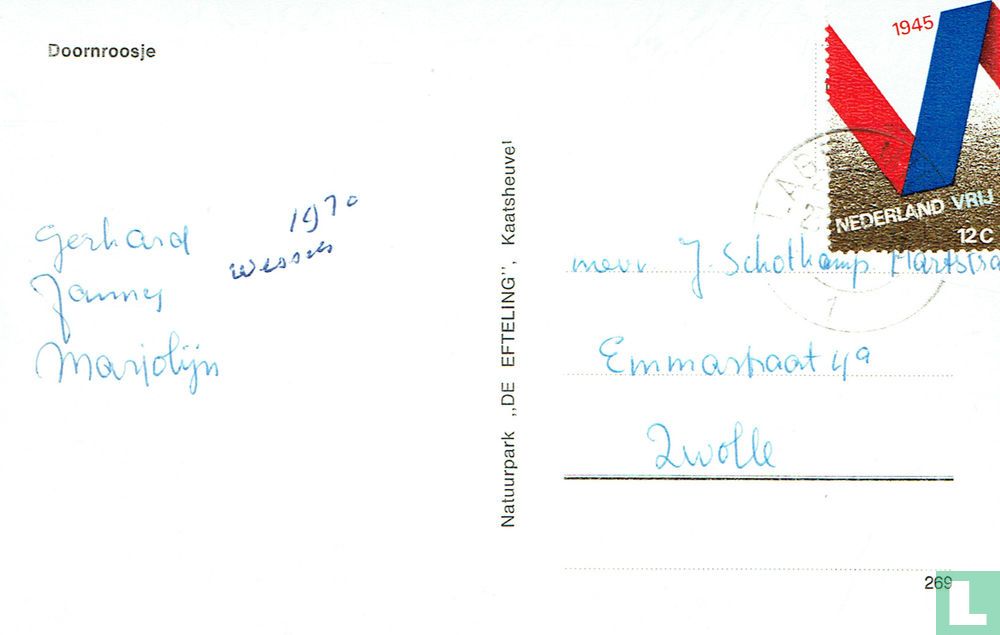 Doornroosje
Gerhard
Jannes
Marjolijn
1970
Wessels
Natuurpark ,,DE EFTELING", Kaatsheuvel
1945
NEDERLAND VRIJ
12C
1
mevr J. Schotkamp
Emmastraat 4a
Zwolle
269
L